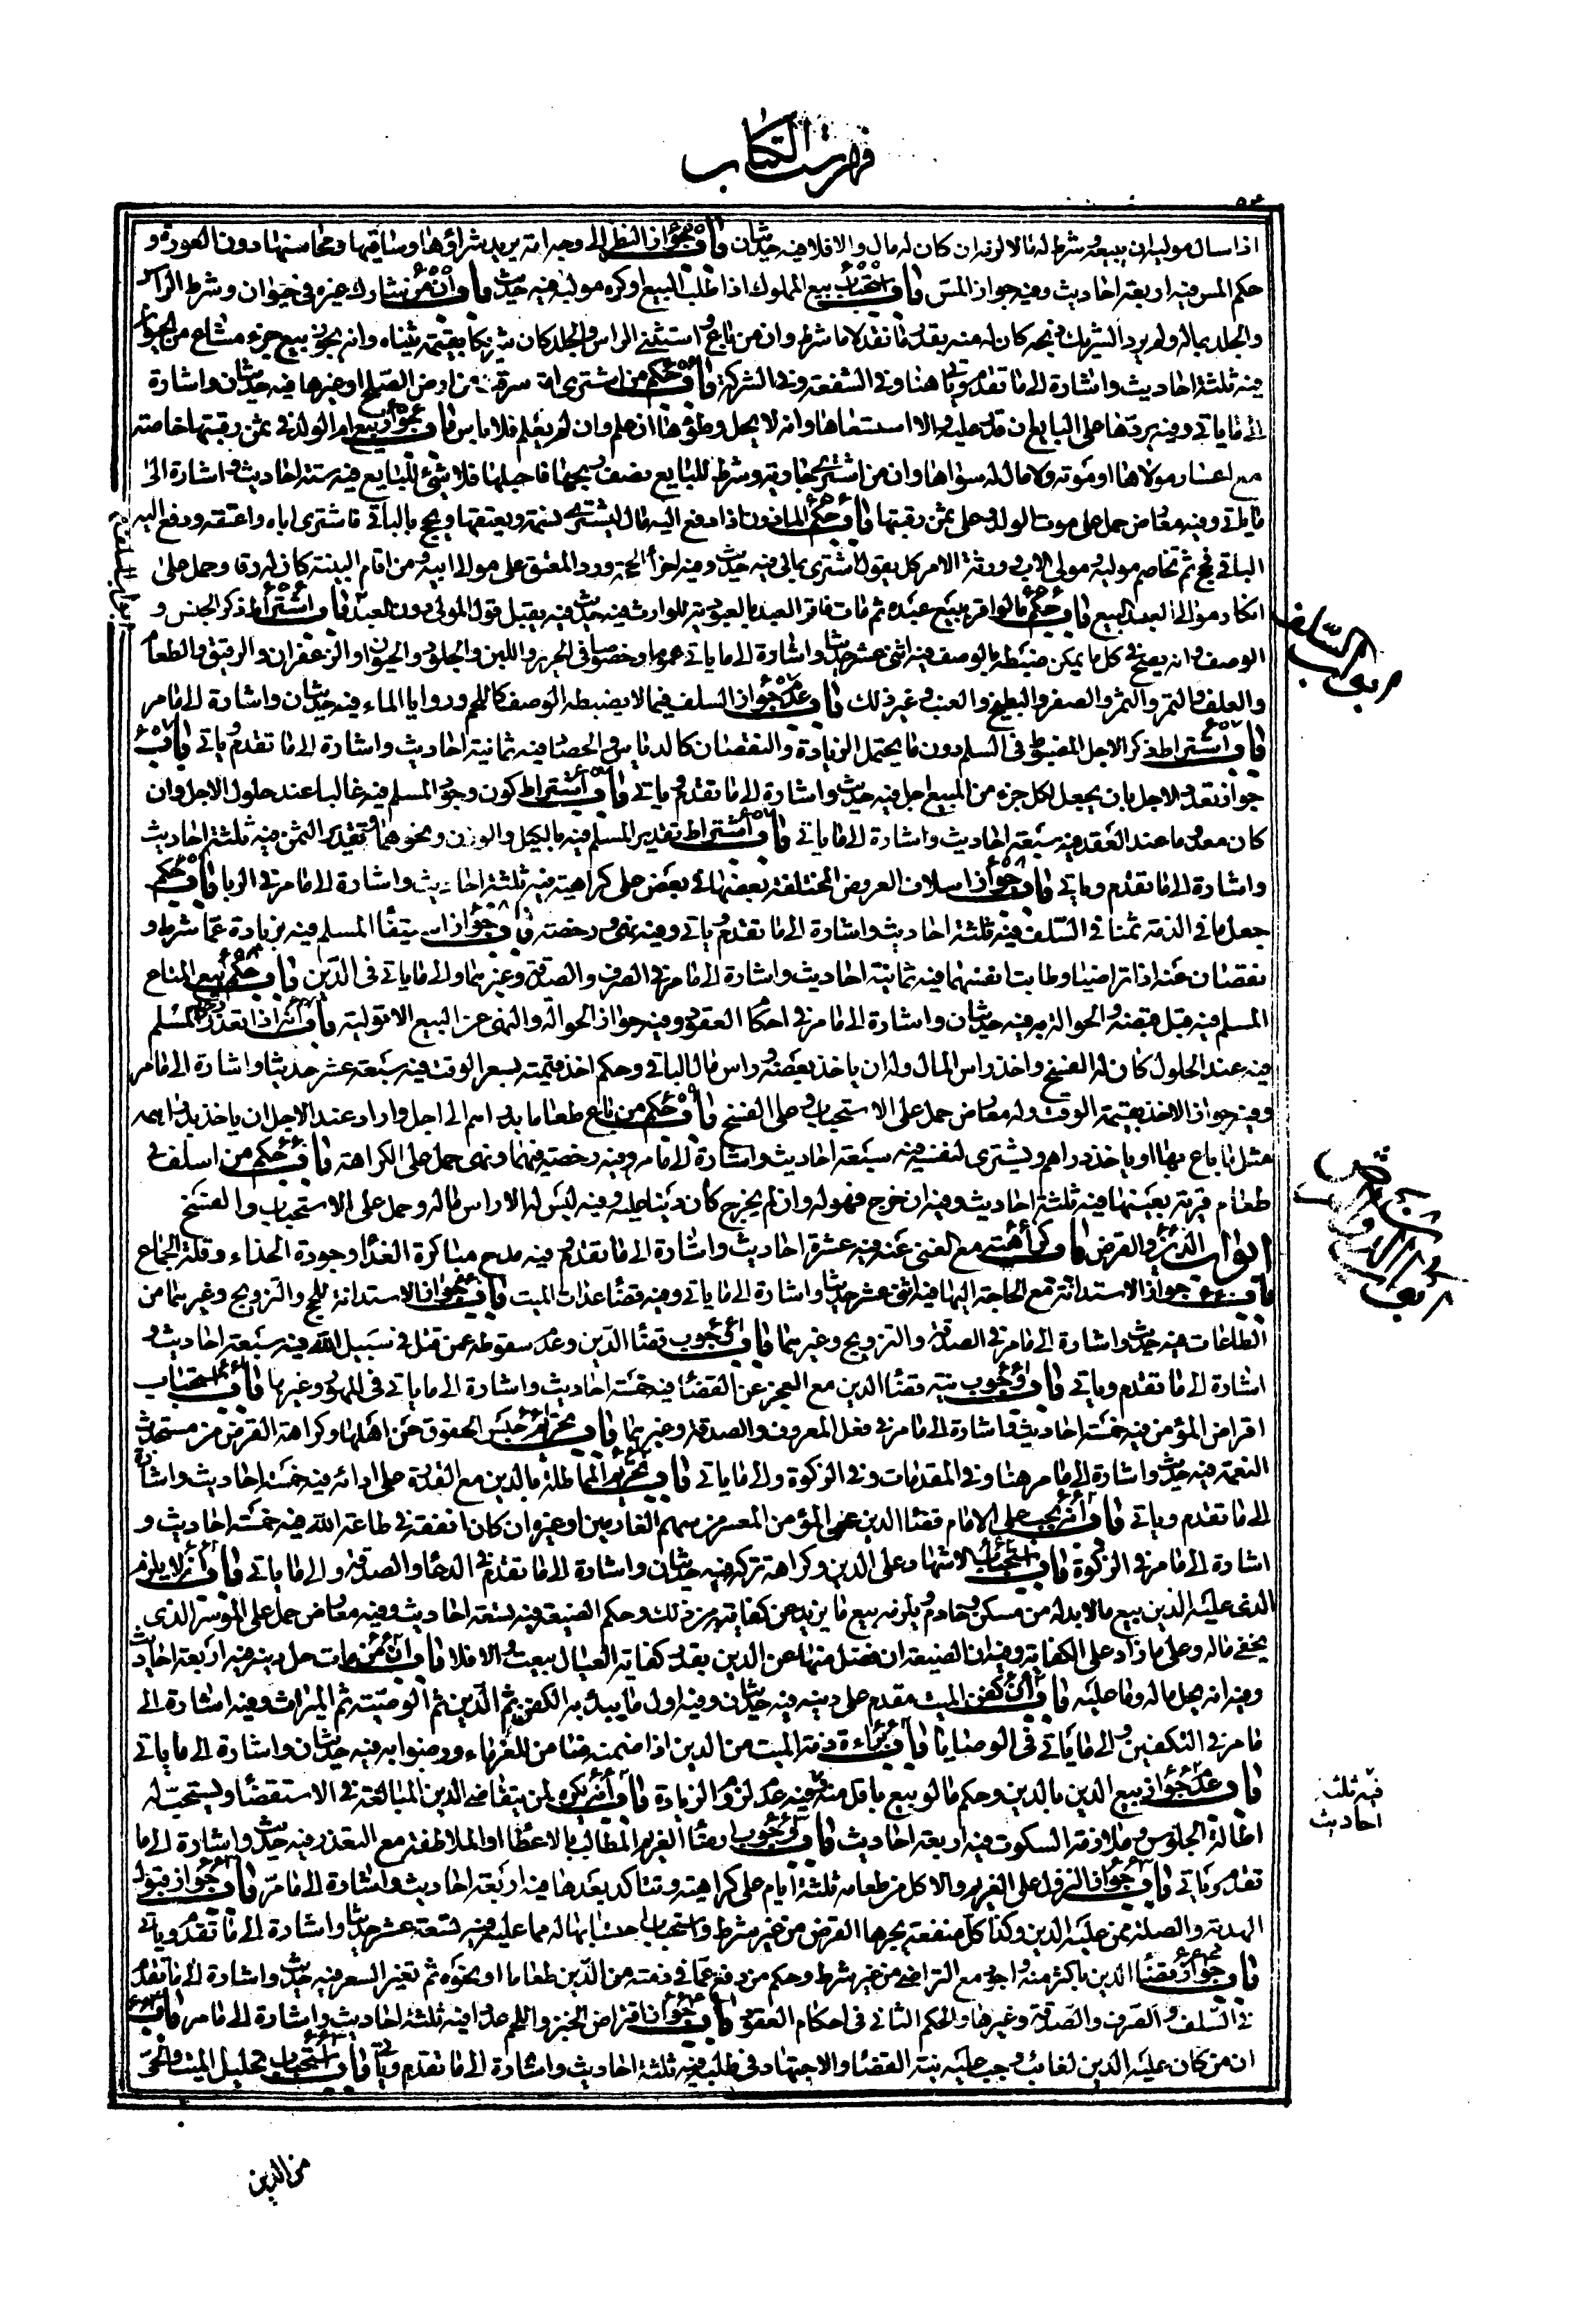 فهرست الكتاب
اذا سال مولاه ان يبيعه وشرط له مالا لزمه ان كان له مال والا فلا فيه حديثان باب جواز النظر الى وجه امة يريد شراؤها وساقيها ومحاسنها دون العورة و
حكم المس فيه اربعة احاديث وفيه جواز المس باب استحباب بيع المملوك اذا طلب البيع او كره مولاه فيه حديث باب ان من شارك غيره في حيوان وشرط الراس
والجلد بماله ولم يرد الشريك ذبحه كان له منه بقدر ما نقد لا ما شرط وان من باع و استثنى الراس والجلد كان شريكا بقيمة ثنياه وانه يجوز بيع جزء مشاع من الحيوان
فيه ثلثة احاديث واشارة الى ما تقدم وياتي هنا وفي الشفعة وفي الشركة باب حكم من اشترى امة سرقت من ارض الصلح او غيرها فيه حديثان واشارة
الى ما ياتي وفيه يردها على البايع ان قدر عليه والا استسعاها وانه لا يحل وطؤها ان علم وان لم يعلم فلا باس باب جواز بيع ام الولد في ثمن رقبتها خاصة
مع اعسار مولاها او موته ولا مال له سواها وان من اشترى جارية وشرط للبايع نصف ربحها فاحبلها فلا شيء للبايع فيه ستة احاديث واشارة الى
ما ياتي وفيه معارض حمل على موت الولد وعلى ثمن رقبتها باب حكم الماذون اذا دفع اليه مال ليشترى نسمة ويعتقها ويحج بالباقي فاشترى اباه واعتقه ودفع اليه
الباقي فحج ثم تخاصم مواليه ومولى الاب وورثة الامر كل يقول اشترى بمالي فيه حديث وفيه اجزأ الحج ورد المعتق على موالى ابيه ومن اقام البينة كان له رقا وحمل على
انكار موالى العبد البيع باب حكم ما لو اقر ببيع عبده ثم مات فاقر العبد بالعبودية للوارث فيه حديث فيه يقبل قول المولى دون العبد باب اشتراط ذكر الجنس و
الوصف وانه يصح في كل ما يمكن ضبطه بالوصف فيه اثنى عشر حديثا واشارة الى ما ياتي عموما وخصوصا في الحرير واللبن والجلود والحيوان والزعفران والرقيق والطعام
والعلف والتمر والثمر والصفر والبطيخ والعنب وغير ذلك باب عدم جواز السلف فيما لا يضبطه الوصف كاللحم وروايا الماء فيه حديثان واشارة الى ما مر
باب اشتراط ذكر الاجل المضبوط في السلم دون ما يحتمل الزيادة والنقصان كالدياس والحصاد فيه ثمانية احاديث واشارة الى ما تقدم وياتي باب
جواز تعدد الاجل بان يجعل لكل جزء من المبيع اجل فيه حديث واشارة الى ما تقدم وياتي باب اشتراط كون وجود المسلم فيه غالبا عند حلول الاجل وان
كان معدوما عند العقد فيه سبعة احاديث واشارة الى ما ياتي باب اشتراط تقدير المسلم فيه بالكيل والوزن ونحوهما وتقدير الثمن فيه ثلثة احاديث
واشارة الى ما تقدم وياتي باب جواز اسلاف العروض المختلفة بعضها في بعض على كراهية فيه ثلثة احاديث واشارة الى ما مر في الربا باب حكم
جعل ما في الذمة ثمنا في السلف فيه ثلثة احاديث واشارة الى ما تقدم وياتي وفيه نهى ورخصة باب جواز استيفاء المسلم فيه بزيادة عما شرط و
نقصان عنه اذا تراضيا وطابت انفسهما فيه ثمانية احاديث واشارة الى ما مر في الصرف والصدقة وغيرهما والى ما ياتي في الدين باب حكم بيع المتاع
المسلم فيه قبل قبضه والحوالة به فيه حديثان واشارة الى ما مر في احكام العقود وفيه جواز الحوالة والنهى عن البيع الا تولية باب انه اذا تعذر المسلم
فيه عند الحلول كان له الفسخ واخذ راس المال وله ان ياخذ بعضه وراس مال الباقي وحكم اخذ قيمته بسعر الوقت فيه سبعة عشر حديثا واشارة الى ما مر
وفيه جواز الاخذ بقيمة الوقت وله معارض حمل على الاستحباب وعلى الفسخ باب حكم من باع طعاما بدراهم الى اجل واراد عند الاجل ان ياخذ بدراهمه
مثل ما باع بها او ياخذ دراهم ويشترى لنفسه فيه سبعة احاديث واشارة الى ما مر وفيه رخصة فيهما ونهى حمل على الكراهة باب حكم من اسلف في
طعام قرية بعينها فيه ثلثة احاديث وفيه ان خرج فهو له وان لم يخرج كان دينا عليه وفيه ليس له الا راس ماله وحمل على الاستحباب والفسخ
ابواب الدين والقرض باب كراهته مع الغنى عنه فيه عشرة احاديث واشارة الى ما تقدم فيه مدح مباكرة الغداء وجودة الحذاء وقلة الجماع
باب جواز الاستدانة مع الحاجة اليها فيه اثنى عشر حديثا واشارة الى ما ياتي وفيه قضاء عدات الميت باب جواز الاستدانة للحج والتزويج وغيرهما من
الطاعات فيه حديث واشارة الى ما مر في الصدقة والتزويج وغيرهما باب وجوب قضاء الدين وعدم سقوطه عمن قتل في سبيل الله فيه سبعة احاديث و
اشارة الى ما تقدم وياتي باب وجوب نية قضاء الدين مع العجز عن القضاء فيه خمسة احاديث واشارة الى ما ياتي في المهور وغيرها باب استحباب
اقراض المؤمن فيه خمسة احاديث واشارة الى ما مر في فعل المعروف والصدقة وغيرهما باب تحريم حبس الحقوق عن اهلها وكراهة القرض من مستحدث
النعمة فيه حديث واشارة الى ما مر هنا وفي المقدمات وفي الزكوة والى ما ياتي باب تحريم المماطلة بالدين مع القدرة على ادائه فيه خمسة احاديث واشارة
الى ما تقدم وياتي باب انه يجب على الامام قضاء الدين عن المؤمن المعسر من سهم الغارمين او غيره ان كان انفقه في طاعة الله فيه خمسة احاديث و
اشارة الى ما مر في الزكوة باب استحباب الاشهاد على الدين وكراهة تركه فيه حديثان واشارة الى ما تقدم في الدعاء والصدقة والى ما ياتي باب انه لا يلزم
الذى عليه الدين بيع ما لا بد له من مسكن وخادم ويلزمه بيع ما يزيد عن كفايته من ذلك وحكم الضيعة فيه تسعة احاديث وفيه معارض حمل على الموسر الذى
يخفى ماله وعلى ما زاد على الكفاية وفيه ان الضيعة ان فضل منها عن الدين بقدر كفاية العيال بيعت والا فلا باب ان من مات حل دينه فيه اربعة احاديث
وفيه انه يحل ماله وما عليه باب ان كفن الميت مقدم على دينه فيه حديثان وفيه اول ما يبدء به الكفن ثم الدين ثم الوصية ثم الميراث وفيه اشارة الى
ما مر في التكفين والى ما ياتي في الوصايا باب براءة ذمة الميت من الدين اذا ضمنه ضامن للغرماء ورضوا به فيه حديثان واشارة الى ما ياتي
باب عدم جواز بيع الدين بالدين وحكم ما لو بيع باقل منه فيه عدم لزوم الزيادة باب انه يكره لمن يتقاضى الدين المبالغة في الاستقضاء ويستحب له
اطالة الجلوس وملازمة السكوت فيه اربعة احاديث باب وجوب ارضاء الغريم المطالب بالاعطاء او الملاطفة مع التعذر فيه حديث واشارة الى ما
تقدم وياتي باب جواز النزول على الغريم والاكل من طعامه ثلثة ايام على كراهية وتتاكد بعدها فيه اربعة احاديث واشارة الى ما مر باب جواز قبول
الهدية والصلة ممن عليه الدين وكذا كل منفعة يجرها القرض من غير شرط واستحباب احتسابها له مما عليه فيه تسعة عشر حديثا واشارة الى ما تقدم وياتي
باب جواز قضاء الدين باكثر منه واجود مع التراضى من غير شرط وحكم من دفع عما في ذمته من الدين طعاما او نحوه ثم تغير السعر فيه حديث واشارة الى ما تقدم
في السلف والصرف والصدقة وغيرها والحكم الثاني في احكام العقود باب جواز اقتراض الخبز واللحم عددا فيه ثلثة احاديث واشارة الى ما مر باب
ان من كان عليه الدين لغائب وجب عليه نية القضاء والاجتهاد في طلبه فيه ثلثة احاديث واشارة الى ما تقدم وياتي باب استحباب تحليل الميت والحى
ابواب السلف
ابواب السلف
ابواب الدين والقرض
فيه ثلثة
احاديث
من الدين